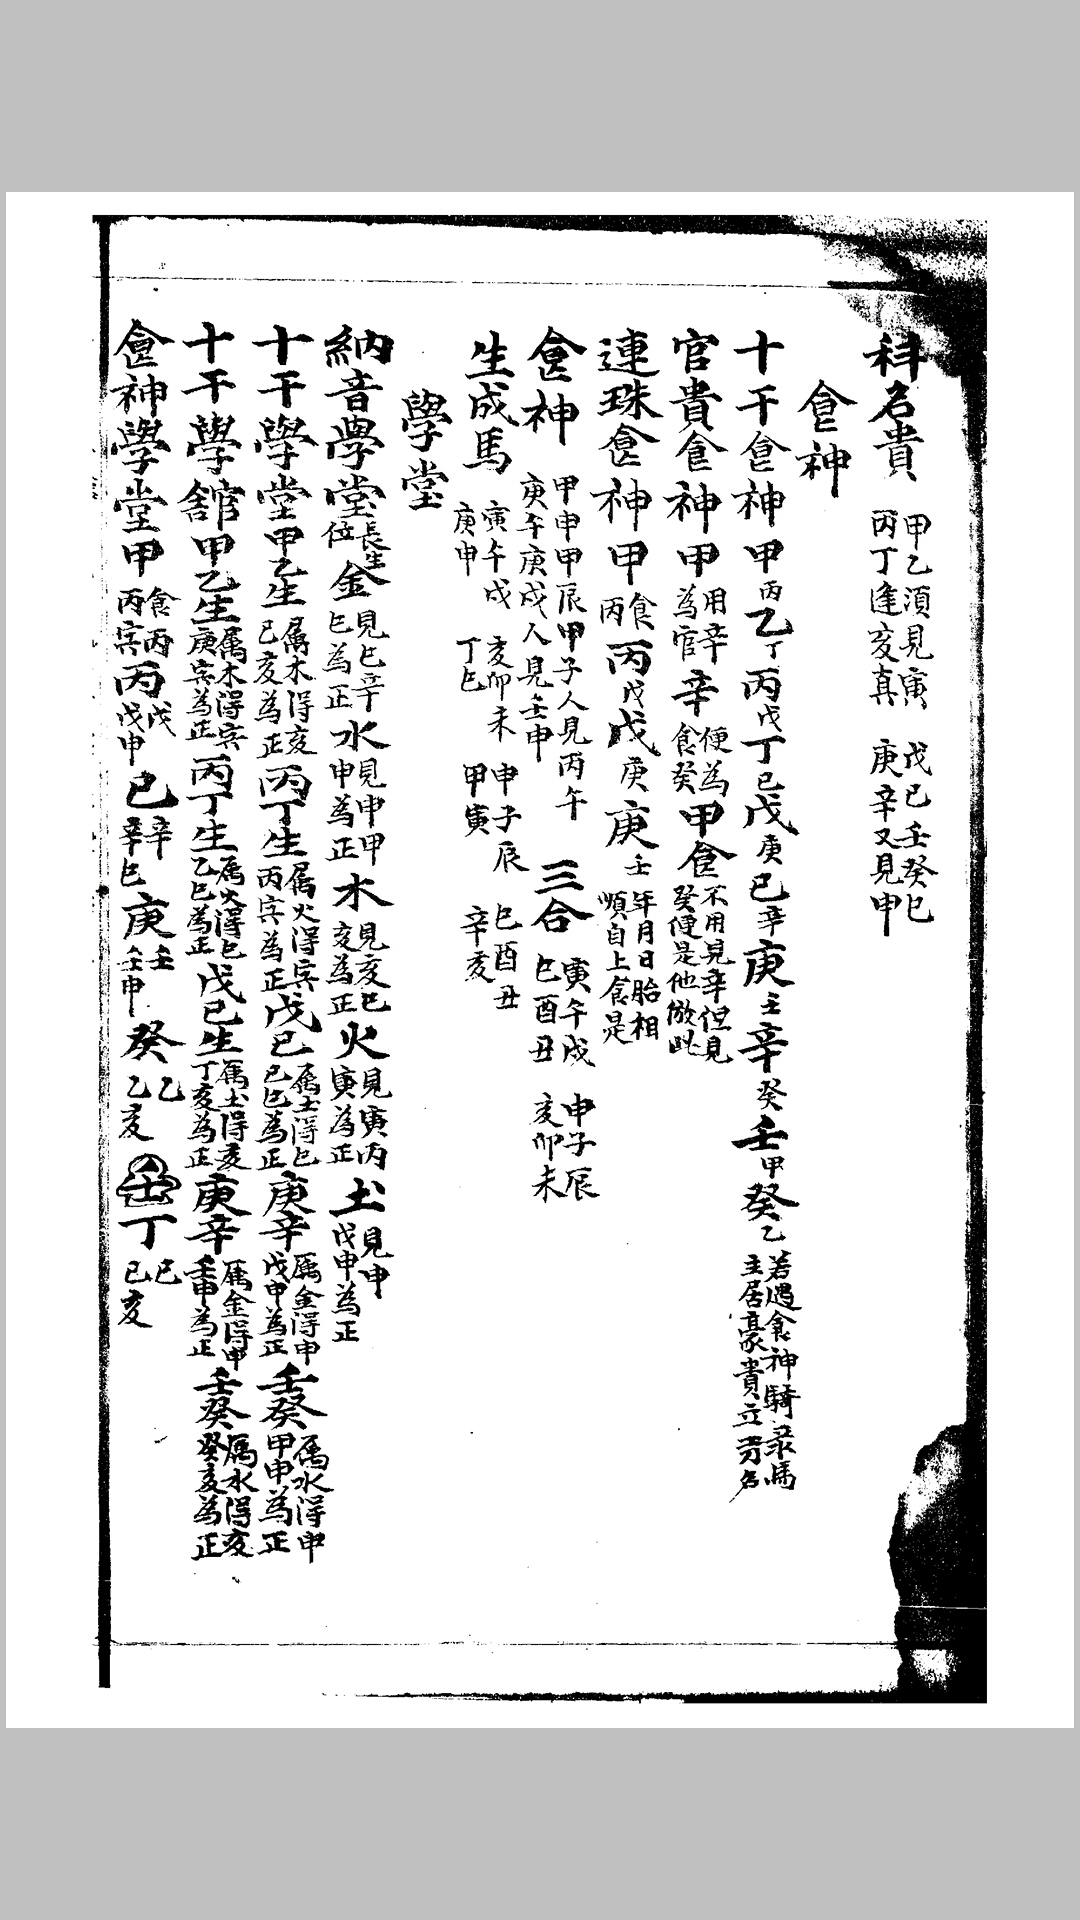 科名貴 甲乙須見寅 丙丁逢亥真 戊己壬癸巳 庚辛又見申
食神
十干食神 甲丙乙丁丙戊丁己戊庚己辛庚壬辛癸壬甲癸乙 若遇食神騎彔馬 主居豪貴立芳名
官貴食神 甲 用辛為官 辛 便為食癸 甲食 不用見辛但見癸便是他倣此
連珠食神 甲 食丙 丙戊戊庚庚壬 年月日胎相順自上食是
食神 甲申甲辰甲子人見丙午 庚午庚戌人見壬申 三合 寅午戌 巳酉丑 申子辰 亥卯未
生成馬 寅午戌 庚申 亥卯未 丁巳 申子辰 甲寅 巳酉丑 辛亥
學堂
納音學堂 長生位 金 見巳辛巳為正 水 見申甲申為正 木 見亥己亥為正 火 見寅丙寅為正 土 見申戊申為正
十干學堂 甲乙生 属木得亥己亥為正 丙丁生 属火得寅丙寅為正 戊己 属土得巳己巳為正 庚辛 属金得申戊申為正 壬癸 属水得申甲申為正
十干學舘 甲乙生 属木得寅庚寅為正 丙丁生 属火得巳乙巳為正 戊己生 属土得亥丁亥為正 庚辛 属金得申壬申為正 壬癸 属水得亥癸亥為正
食神學堂 甲 食丙丙寅 丙 戊戊申 己 辛辛巳 庚 壬壬申 癸 乙乙亥 壬丁 己己亥